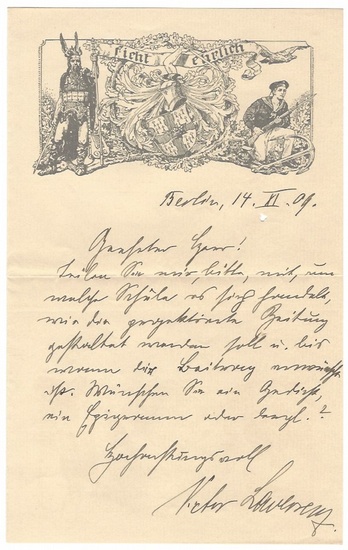 Ficht ehrlich
Berlin, 14. VI. 09.
Geehrter Herr!
Teilen Sie mir, bitte, mit, um
welche Schule es sich handelt,
wie die projektierte Zeitung
gestaltet werden soll u. bis
wann die Beitrag erwünscht
ist. Wünschen Sie ein Gedicht,
ein Epigramm oder dergl.?
Hochachtungsvoll
Victor Laverrenz